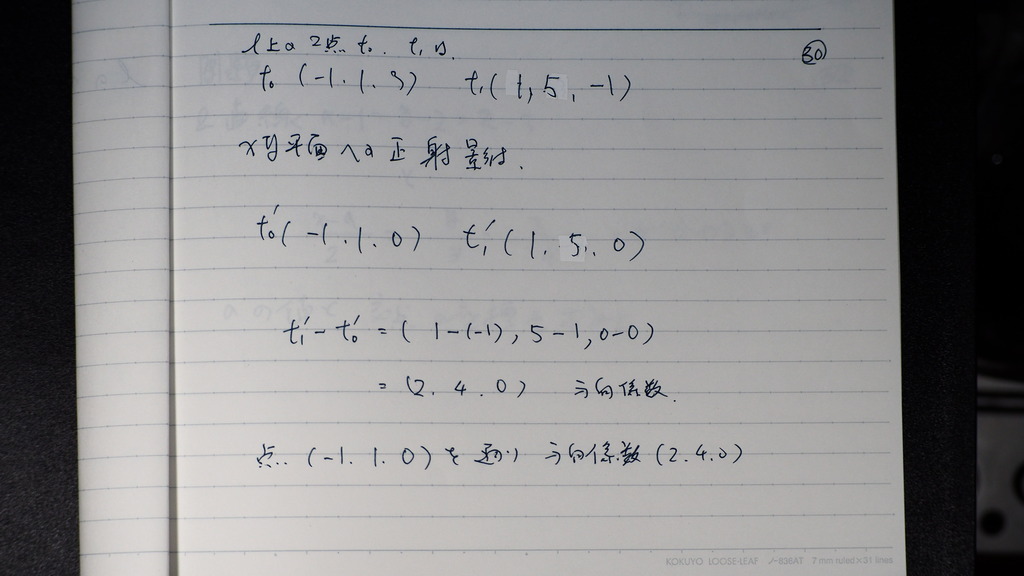 l上の2点 t₀. t₁は.
㉚
t₀ (-1. 1. 3) t₁( 1, 5, -1)
xy平面への正射影は.
t₀′( -1. 1. 0) t₁′( 1. 5. 0)
t₁′- t₀′ = ( 1-(-1), 5-1, 0-0)
= (2. 4. 0) 方向係数.
点. (-1. 1. 0) を通り 方向係数 (2.4.0)
KOKUYO LOOSE-LEAF ノ-836AT 7 mm ruled×31 lines